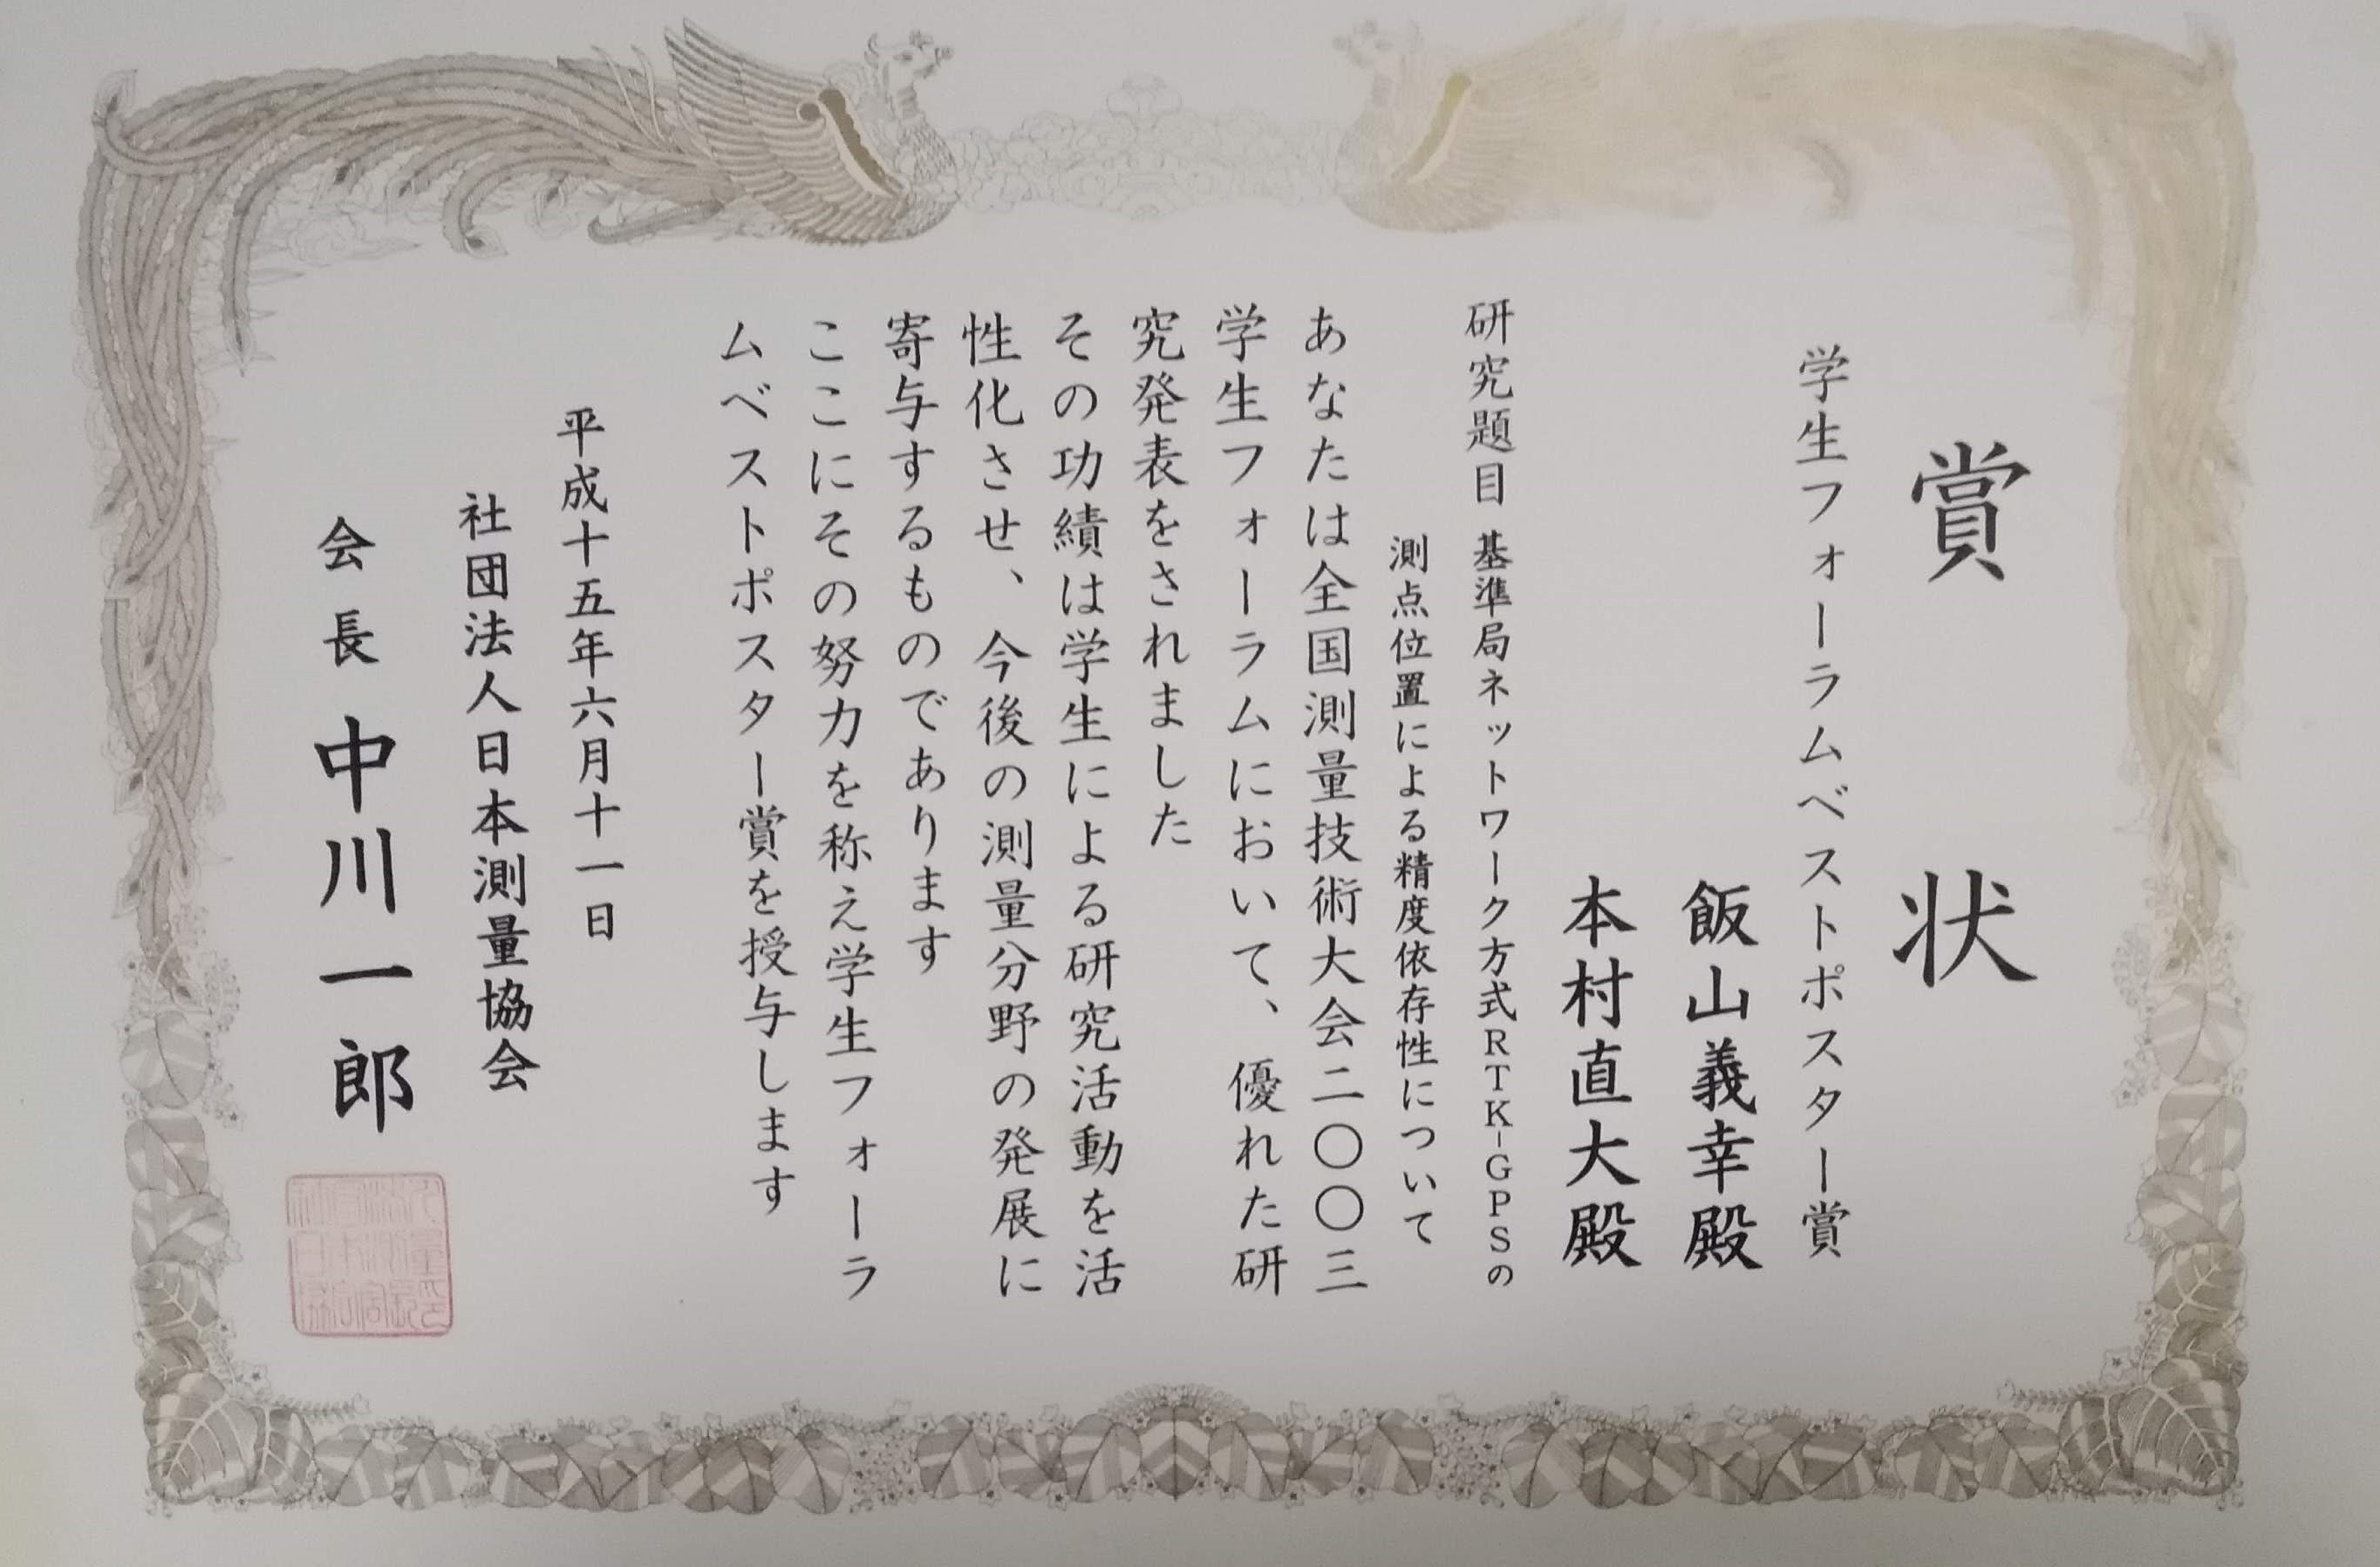 賞状
学生フォーラムベストポスター賞
飯山義幸殿
本村直大殿
研究題目 基準局ネットワーク方式RTK-GPSの
測点位置による精度依存性について
あなたは全国測量技術大会二〇〇三
学生フォーラムにおいて、優れた研
究発表をされました
その功績は学生による研究活動を活
性化させ、今後の測量分野の発展に
寄与するものであります
ここにその努力を称え学生フォーラ
ムベストポスター賞を授与します
平成十五年六月十一日
社団法人日本測量協会
会長 中川一郎